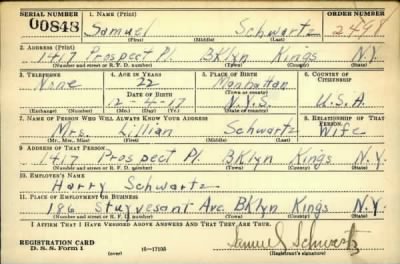 SERIAL NUMBER 1. NAME (Print) ORDER NUMBER
00848 Samuel Schwartz 2498
(First) (Middle) (Last)
2. ADDRESS (Print)
1417 Prospect Pl. BKlyn Kings N.Y.
(Number and street or R. F. D. number) (Town) (County) (State)
3. TELEPHONE 4. AGE IN YEARS 5. PLACE OF BIRTH 6. COUNTRY OF CITIZENSHIP
None 22 Manhattan
DATE OF BIRTH (Town or county)
12-4-17 N.Y.S. U.S.A.
(Exchange) (Number) (Mo.) (Day) (Yr.) (State or country)
7. NAME OF PERSON WHO WILL ALWAYS KNOW YOUR ADDRESS 8. RELATIONSHIP OF THAT PERSON
Mrs. Lillian Schwartz Wife
(Mr., Mrs., Miss) (First) (Middle) (Last)
9. ADDRESS OF THAT PERSON
1417 Prospect Pl. BKlyn Kings N.Y.
(Number and street or R. F. D. number) (Town) (County) (State)
10. EMPLOYER'S NAME
Harry Schwartz
11. PLACE OF EMPLOYMENT OR BUSINESS
186 Stuyvesant Ave. BKlyn Kings N.Y.
(Number and street or R. F. D. number) (Town) (County) (State)
I AFFIRM THAT I HAVE VERIFIED ABOVE ANSWERS AND THAT THEY ARE TRUE.
Samuel Schwartz
REGISTRATION CARD
D. S. S. Form 1 (over) 16—17105 (Registrant's signature)